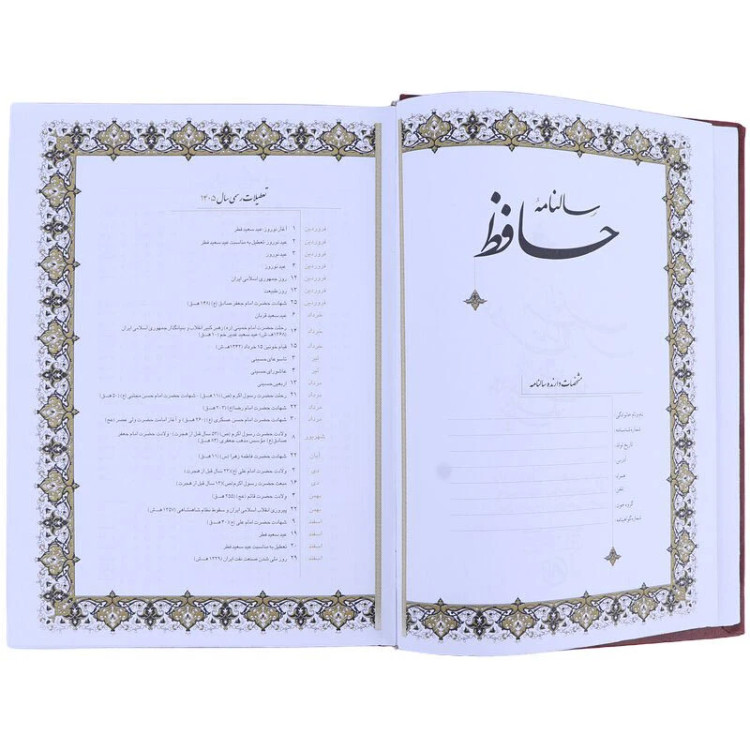 سالنامهٔ
حافظ
مشخصات دارنده سالنامه
نام و نام خانوادگی
شماره شناسنامه
تاریخ تولد
آدرس
همراه
تلفن
گروه خون
شماره گواهینامه
تعطیلات رسمی سال ۱۴۰۵
فروردین ۱ آغاز نوروز عید سعید فطر
فروردین ۲ عید نوروز (تعطیل به مناسبت عید سعید فطر
فروردین ۳ عید نوروز
فروردین ۴ عید نوروز
فروردین ۱۲ روز جمهوری اسلامی ایران
فروردین ۱۳ روز طبیعت
فروردین ۲۵ شهادت حضرت امام جعفر صادق(ع) (۱۴۸ هـ.ق)
خرداد ۶ عید سعید قربان
خرداد ۱۴ رحلت حضرت امام خمینی (ره) رهبر کبیر انقلاب و بنیانگذار جمهوری اسلامی ایران
(۱۳۶۸هـ.ش) عید سعید غدیر خم (۱۰ هـ.ق)
خرداد ۱۵ قیام خونین ۱۵ خرداد (۱۳۴۲هـ.ش)
تیر ۳ تاسوعای حسینی
تیر ۴ عاشورای حسینی
مرداد ۱۳ اربعین حسینی
مرداد ۲۱ رحلت حضرت رسول اکرم(ص) (۱۱هـ.ق) - شهادت حضرت امام حسن مجتبی (ع) (۵۰ هـ.ق)
مرداد ۲۲ شهادت حضرت امام رضا(ع) (۲۰۳ هـ.ق)
مرداد ۳۰ شهادت حضرت امام حسن عسکری (ع) (۲۶۰ هـ.ق) و آغاز امامت حضرت ولی عصر (عج)
شهریور ولادت حضرت رسول اکرم(ص) (۵۳ سال قبل از هجرت) - ولادت حضرت امام جعفر
صادق(ع) مؤسس مذهب جعفری (۸۳ هـ.ق)
آبان ۲۲ شهادت حضرت فاطمه زهرا (س) (۱۱ هـ.ق)
دی ۲ ولادت حضرت امام علی (ع) (۲۳ سال قبل از هجرت)
دی ۱۶ مبعث حضرت رسول اکرم(ص) (۱۳ سال قبل از هجرت)
بهمن ۴ ولادت حضرت قائم (عج) (۲۵۵ هـ.ق)
بهمن ۲۲ پیروزی انقلاب اسلامی ایران و سقوط نظام شاهنشاهی (۱۳۵۷ هـ.ش)
اسفند ۹ شهادت حضرت امام علی (ع) (۴۰ هـ.ق)
اسفند ۱۹ عید سعید فطر
اسفند ۲۰ تعطیل به مناسبت عید سعید فطر
اسفند ۲۹ روز ملی شدن صنعت نفت ایران (۱۳۲۹ هـ.ش)